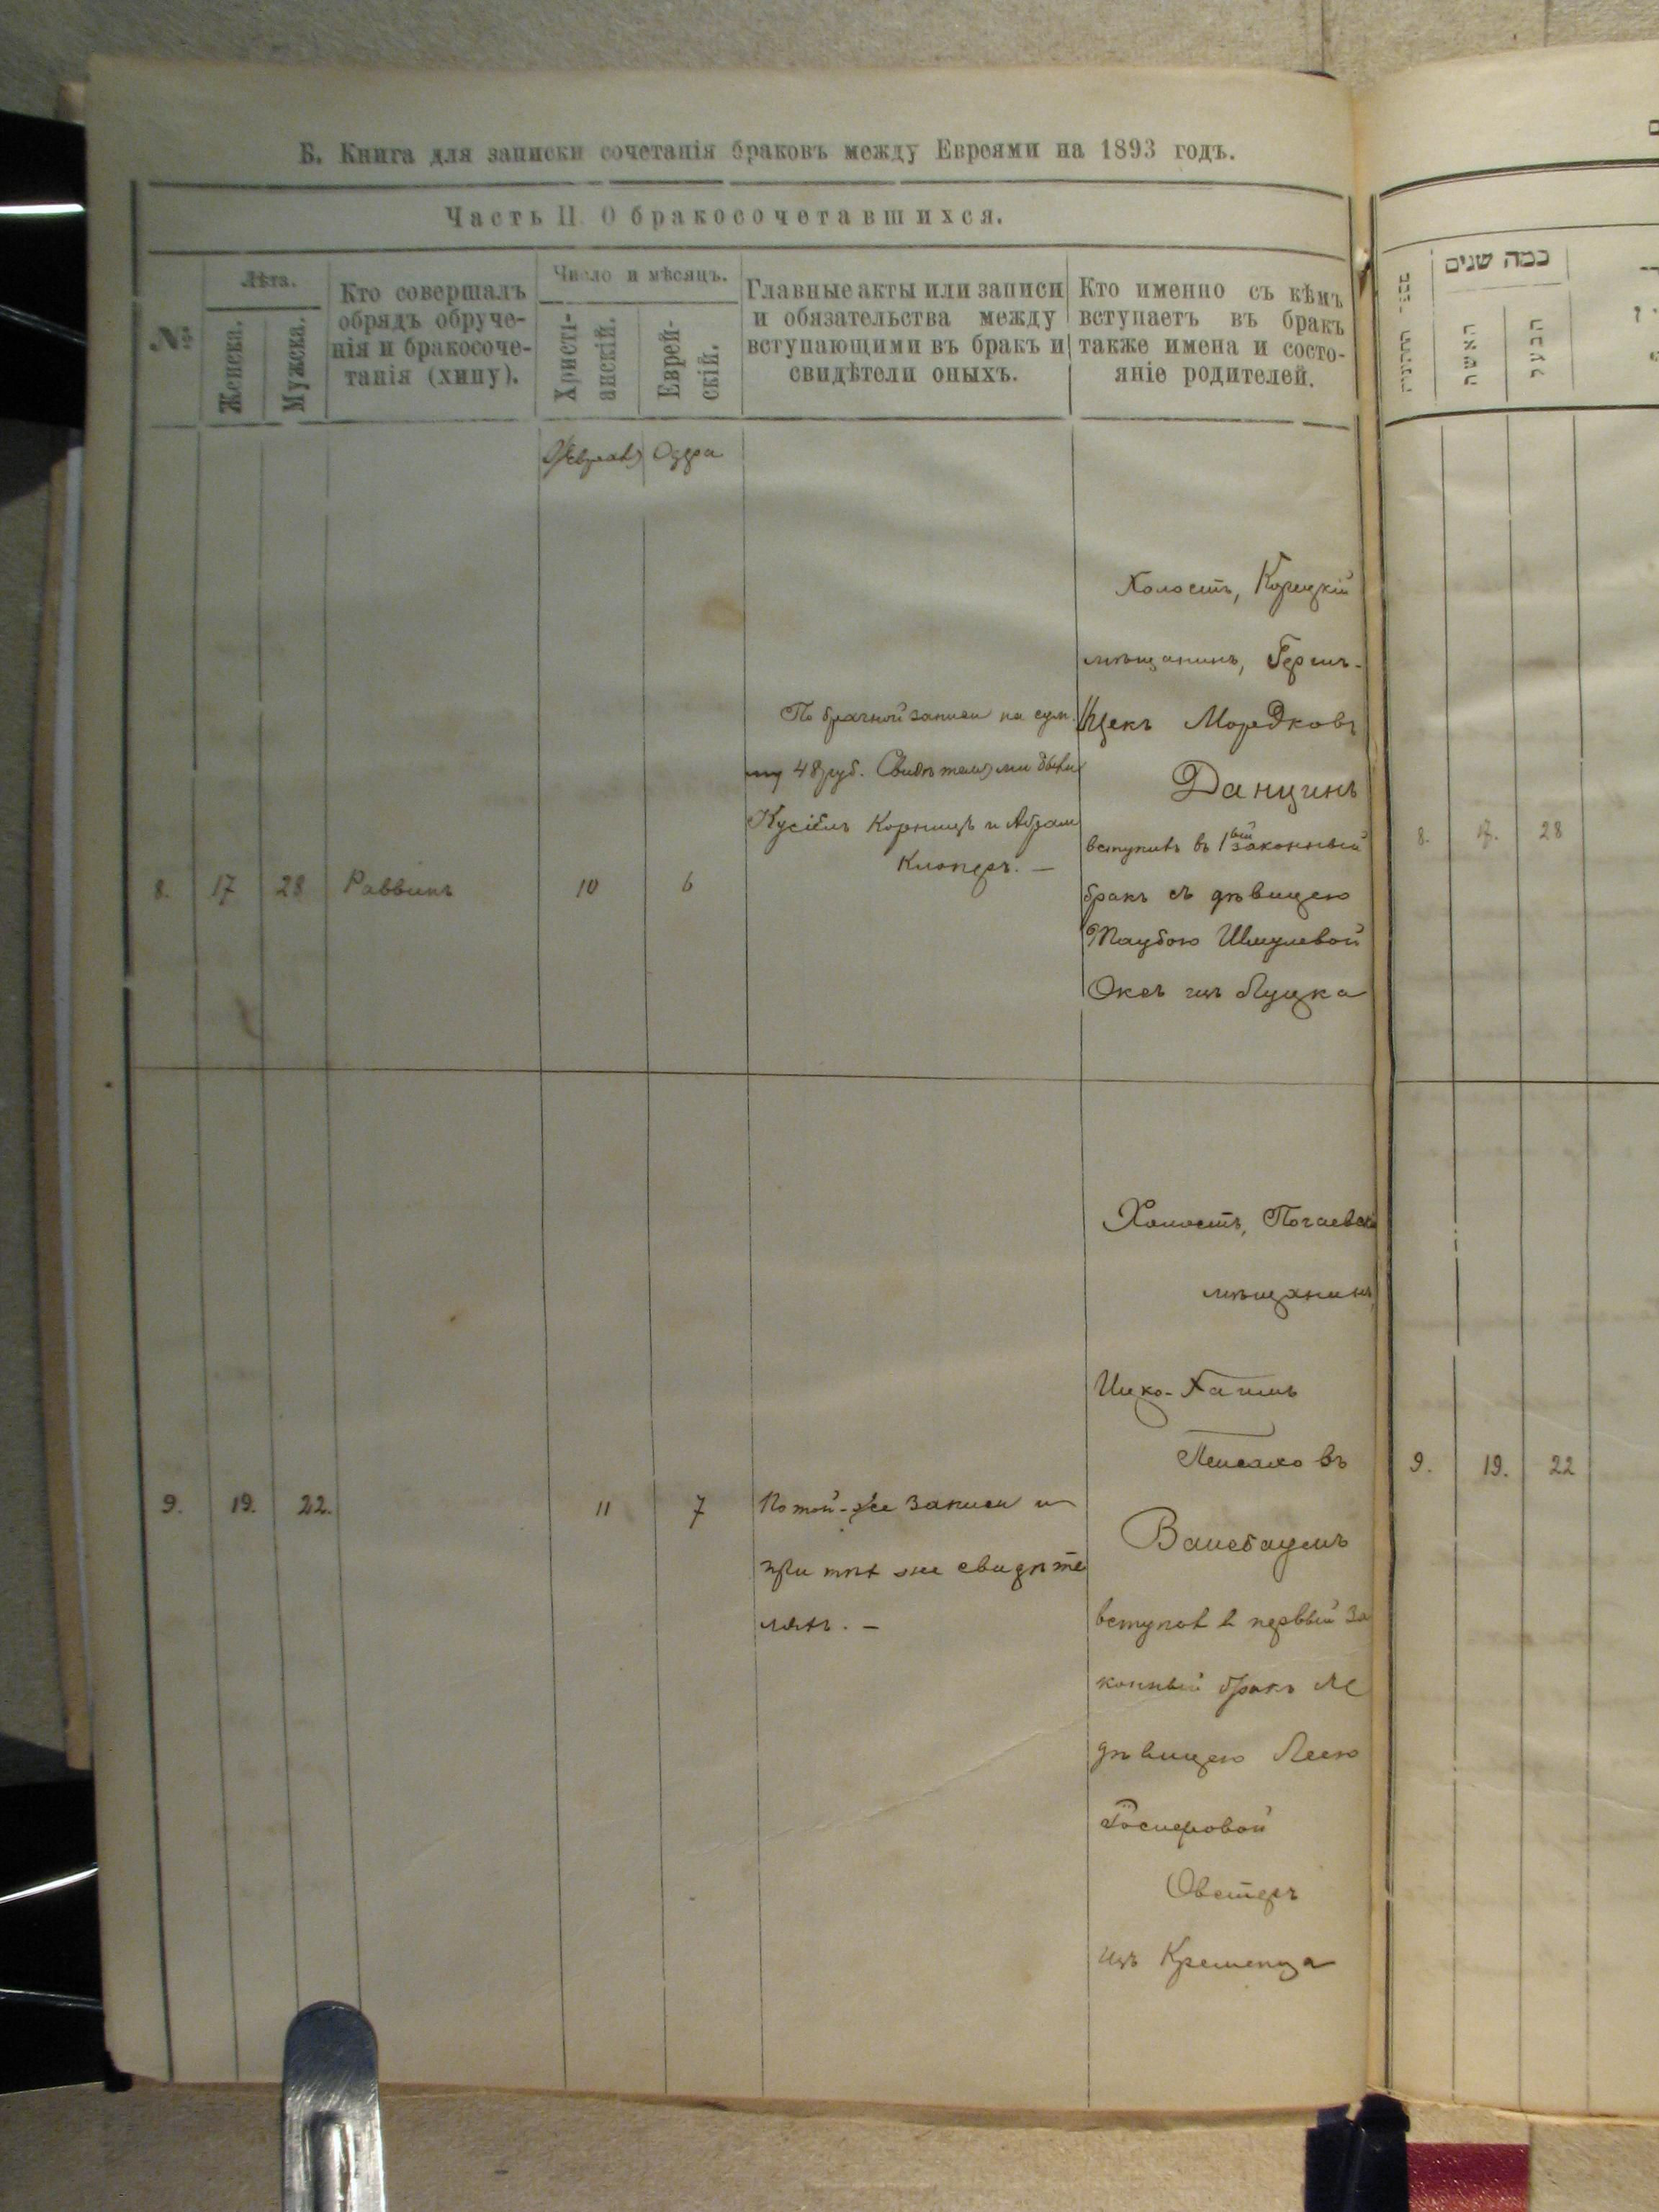 Б. Книга для записки сочетанія браковъ между Евреями на 1893 годъ.
Часть II О бракосочетавшихся.
№
Лѣта.
Женска.
Мужска.
Кто совершалъ
обрядъ обруче-
нія и бракосоче-
танія (хипу).
Число и мѣсяцъ.
Христі-
анскій.
Еврей-
скій.
Главные акты или записи
и обязательства между
вступающими въ бракъ и
свидѣтели оныхъ.
Кто именно съ кѣмъ
вступаетъ въ бракъ
также имена и состо-
яніе родителей.
Февраль
8.
17
28
Раввинъ
10
6
По брачной записи на сум-
му 48 руб. Свидѣтелями были
Корницъ и Абрам
Клоперъ. —
Холостъ, Корецкій
мѣщанинъ, Герш-
Ицекъ Мордковъ
Данцинъ
вступилъ въ 1ый законный
бракъ съ дѣвицею
Таубою Шмулевой
Оксъ изъ Луцка
9.
19.
22.
11
7
По той-же записи и
при тѣх же свидѣте
ляхъ. —
Холостъ, Почаевскій
мѣщанинъ,
Ицко-Хаимъ
Пейсаховъ
Вайсбаумъ
вступил в первый за
конный бракъ съ
дѣвицею Леею
Іосифовой
Овстеръ
изъ Кременца
כמה שנים
האשה
הבעל
8.
17.
28
9.
19.
22